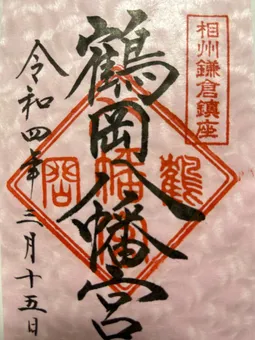 相州鎌倉鎮座
鶴岡八幡宮
鶴岡八幡宮
令和四年三月十五日